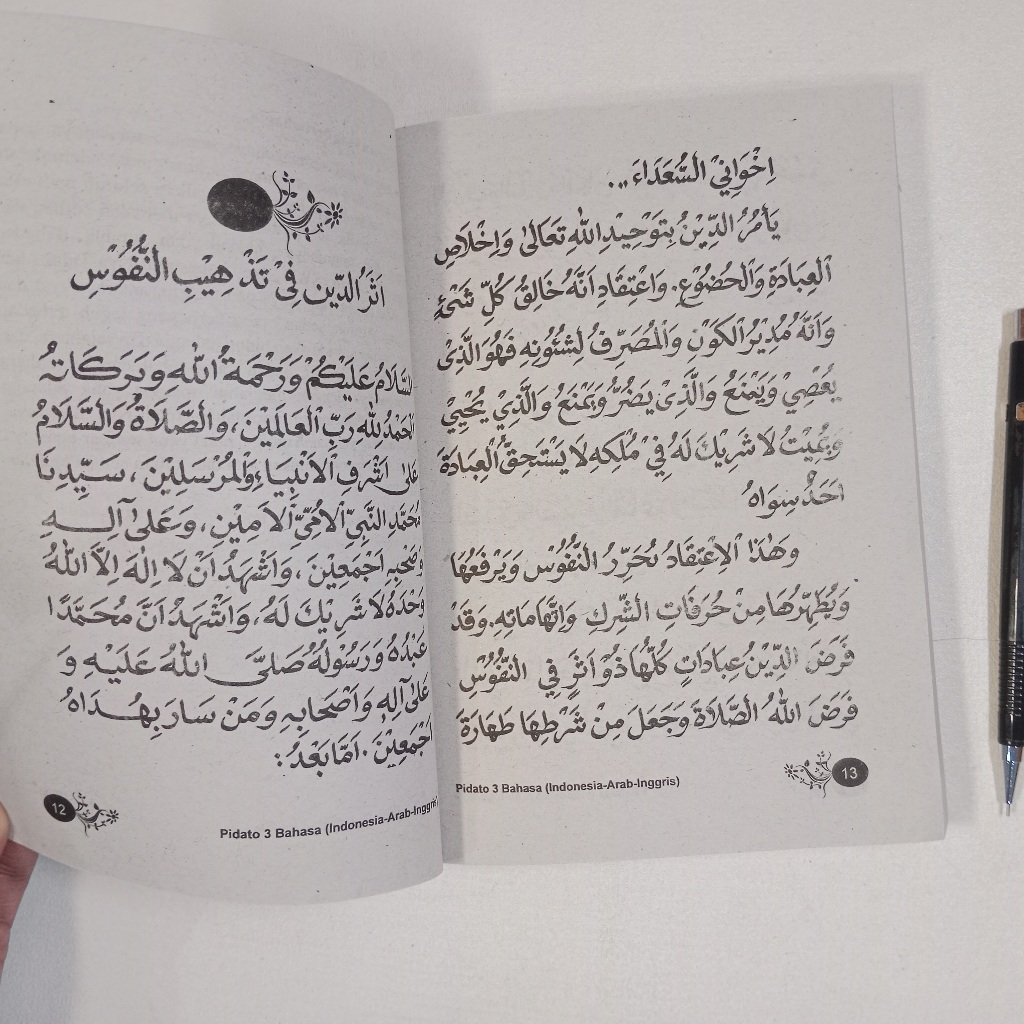 اَثَرُ الدِّيْنِ فِيْ تَذْهِيْبِ النُّفُوْسِ
السَّلَامُ عَلَيْكُمْ وَرَحْمَةُ اللّٰهِ وَبَرَكَاتُهُ
اَلْحَمْدُ لِلّٰهِ رَبِّ الْعَالَمِيْنَ، وَالصَّلَاةُ وَالسَّلَامُ
عَلَى اَشْرَفِ الْاَنْبِيَاءِ وَالْمُرْسَلِيْنَ، سَيِّدِنَا
مُحَمَّدٍ النَّبِيِّ الْاُمِّيِّ الْاَمِيْنِ، وَعَلٰى آلِهِ
وَصَحْبِهِ اَجْمَعِيْنَ، وَاَشْهَدُ اَنْ لَا اِلٰهَ اِلَّا اللّٰهُ
وَحْدَهُ لَا شَرِيْكَ لَهُ، وَاَشْهَدُ اَنَّ مُحَمَّدًا
عَبْدُهُ وَرَسُوْلُهُ صَلَّى اللّٰهُ عَلَيْهِ وَ
عَلٰى آلِهِ وَاَصْحَابِهِ وَمَنْ سَارَ بِهُدَاهُ
اَجْمَعِيْنَ. اَمَّا بَعْدُ:
12
Pidato 3 Bahasa (Indonesia-Arab-Inggris)
اِخْوَانِيْ السُّعَدَاءَ...
يَأْمُرُ الدِّيْنُ بِتَوْحِيْدِ اللّٰهِ تَعَالٰى وَاِخْلَاصِ
الْعِبَادَةِ وَالْحُضُوْعِ. وَاعْتِقَادِ اَنَّهُ خَالِقُ كُلِّ شَيْءٍ
وَاَنَّهُ مُدِيْرُ الْكَوْنِ وَالْمُصَرِّفُ لِشُئُوْنِهِ فَهُوَ الَّذِى
يُعْصِيْ وَيَمْنَعُ وَالَّذِى يَضُرُّ وَيَمْنَعُ وَالَّذِيْ يُحْيِيْ
وَيُمِيْتُ لَا شَرِيْكَ لَهُ فِيْ مُلْكِهِ لَا يَسْتَحِقُّ الْعِبَادَةَ
اَحَدٌ سِوَاهُ
وَهٰذَا الْاِعْتِقَادُ يُحَرِّرُ النُّفُوْسَ وَيَرْفَعُهَا
وَيُطَهِّرُهَا مِنْ خُرَفَاتِ الشِّرْكِ وَاِتِّهَامَاتِهِ. وَقَدْ
فَرَضَ الدِّيْنُ عِبَادَاتٍ كُلُّهَا ذُوْ اَثَرٍ فِي النُّفُوْسِ
فَرَضَ اللّٰهُ الصَّلَاةَ وَجَعَلَ مِنْ شَرْطِهَا طَهَارَةَ
Pidato 3 Bahasa (Indonesia-Arab-Inggris)
13